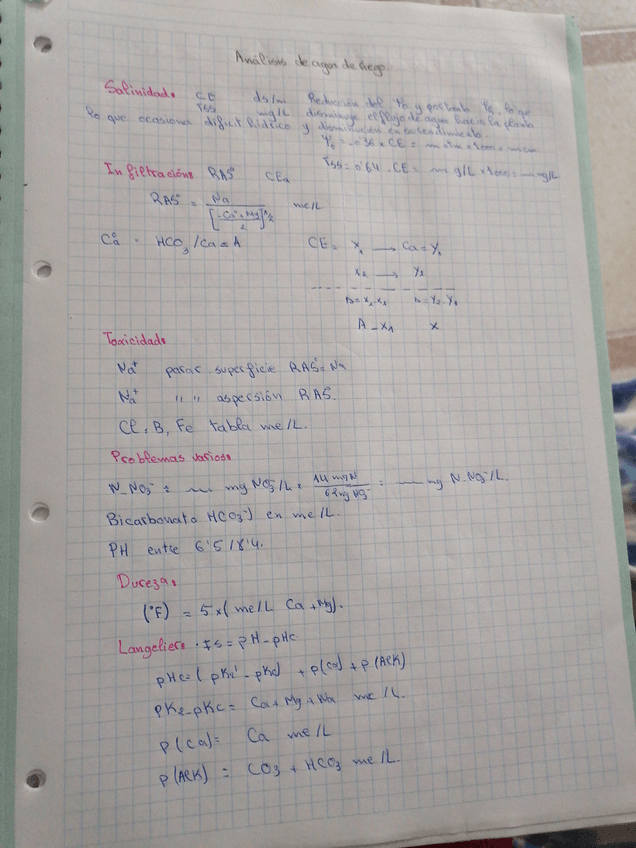 Análisis de agua de riego
Salinidad: CE ds/m Reducción del Ψo y por tanto Ψh, lo que
TSS mg/L disminuye el flujo de agua hacia la planta
lo que ocasiona déficit hídrico y disminución en rendimiento.
Ψo = -0'36 x CE = atm x 1000 = cm
TSS = 0'64 . CE = g/L x 1000 = mg/L
Infiltración: RAS° CEa
RAS° = Na / [Ca° + Mg / 2]^1/2 me/L
Ca° = HCO3/Ca = A CE = X1 → Ca = Y1
X2 → Y2
D = X2-X1 D = Y2-Y1
A - X1 X
Toxicidad:
Na+ para superficie RAS° = Na
Na+ " " aspersión RAS°.
Cl, B, Fe tabla me/L.
Problemas varios:
N-NO3- = mg NO3-/L x 14 mg N / 62 mg NO3- = mg N-NO3-/L.
Bicarbonato HCO3-) en me/L.
PH entre 6'5/8'4.
Dureza:
(°F) = 5 x (me/L Ca + Mg).
Langelier: Is = pH - pHc
pHc = (pK2' - pKc) + p(Ca) + p(AlK)
pK2-pKc = Ca + Mg + Na me/L.
p(Ca) = Ca me/L
p(AlK) = CO3 + HCO3 me/L.